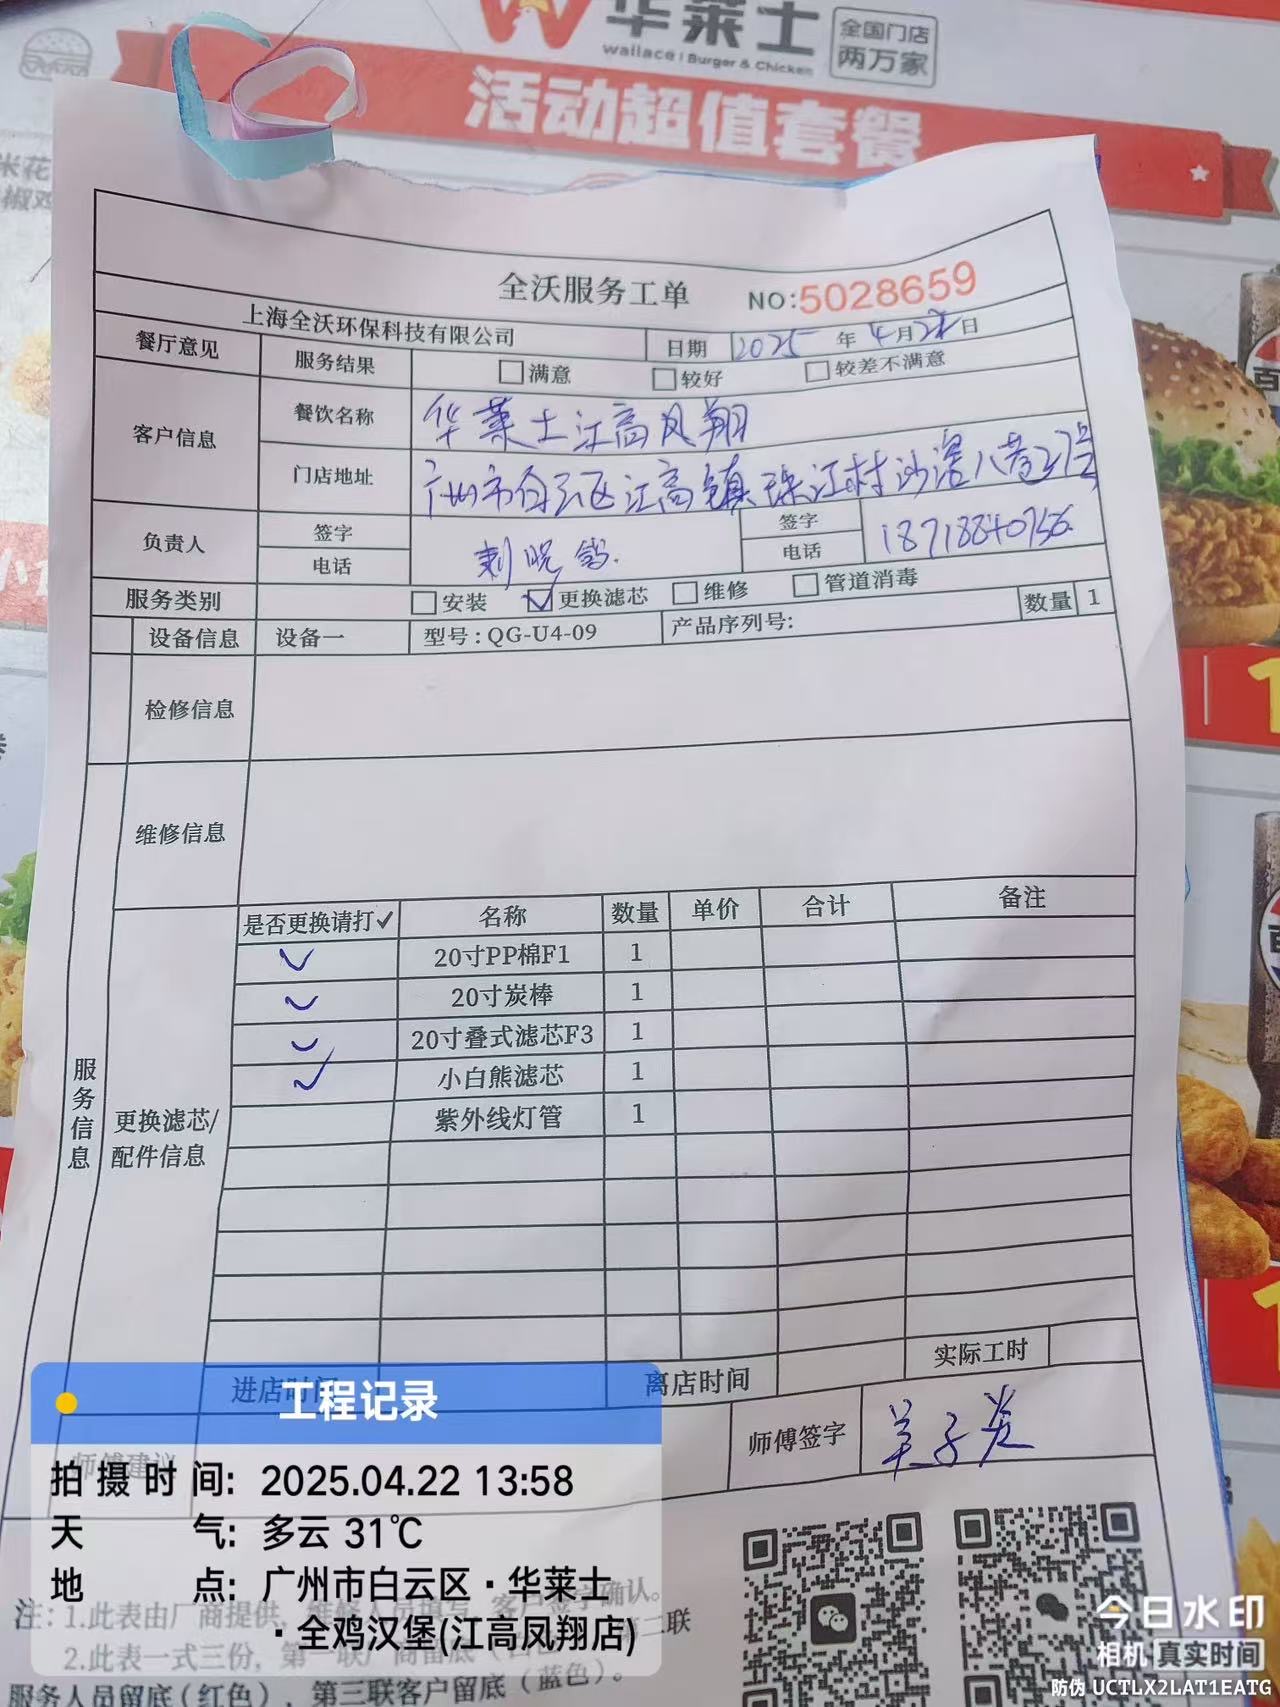 华莱士
wallace | Burger & Chicken
全国门店
两万家
活动超值套餐
米花
椒鸡
全沃服务工单 NO:5028659
上海全沃环保科技有限公司 日期 2025 年 4月22日
餐厅意见 服务结果 满意 较好 较差不满意
客户信息 餐饮名称 华莱士江高凤翔
门店地址 广州市白云区江高镇珠江村沙溪八巷27号
负责人 签字 签字
电话 电话 18718840756
服务类别 安装 更换滤芯 维修 管道消毒
设备信息 设备一 型号:QG-U4-09 产品序列号: 数量 1
检修信息
维修信息
服务信息
更换滤芯/
配件信息
是否更换请打✓ 名称 数量 单价 合计 备注
✓ 20寸PP棉F1 1
✓ 20寸炭棒 1
✓ 20寸叠式滤芯F3 1
✓ 小白熊滤芯 1
紫外线灯管 1
进店时间 离店时间 实际工时
师傅建议 师傅签字
工程记录
拍摄时间: 2025.04.22 13:58
天气: 多云 31℃
地点: 广州市白云区·华莱士
·全鸡汉堡(江高凤翔店)
注: 1.此表由厂商提供,
2.此表一式三份,
服务人员留底(红色)、第三联客户留底(蓝色)。
今日水印
相机 真实时间
防伪 UCTLX2LAT1EATG